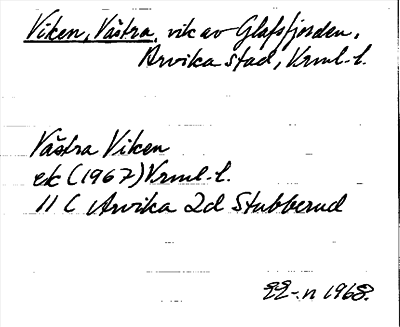 Viken, Västra, vik av Glafsfjorden,
Arvika stad, Vrml. l.
Västra Viken
ek (1967) Vrml. l.
11 C Arvika 2d Stubberud
1968.